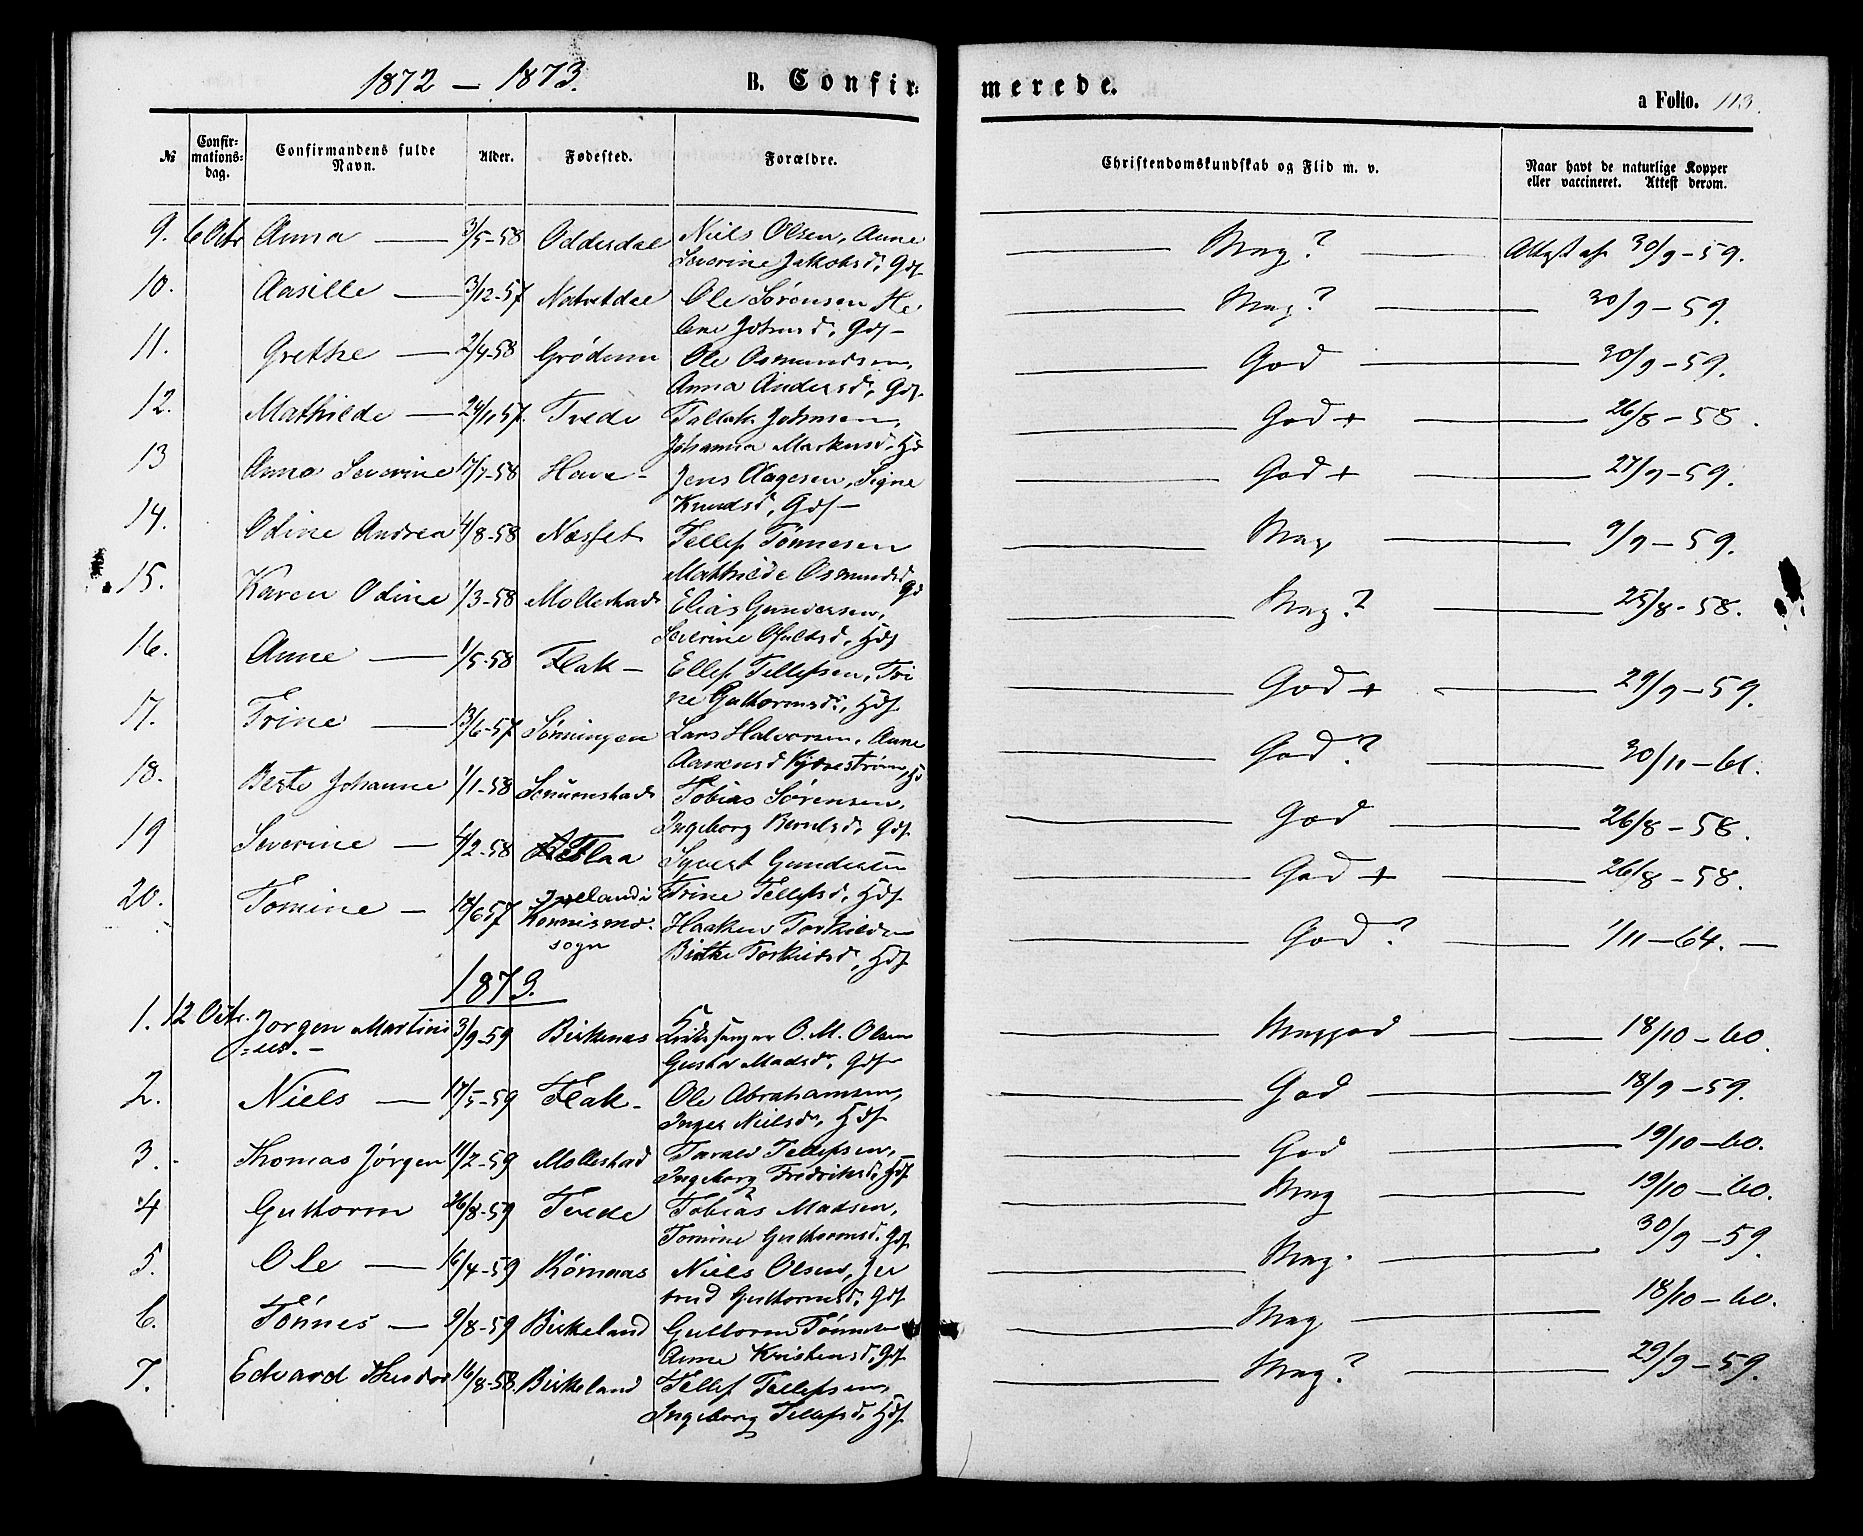 1872 — 1873.
B. Confir-
merede.
a Folio. 113.
№
Confir-
mations-
dag.
Confirmandens fulde
Navn.
Alder.
Fødested.
Forældre.
Christendomskundskab og Flid m. v.
Naar havt de naturlige Kopper
eller vaccineret. Attest derom.
9. 6 Octr Anna — 3/5-58 Oddersdal Niels Olsen, Anne
Severine Jakobsd, Gdf
Mag? Attest af 30/9-59.
10. Aasille — 3/12-57 Natvetdal Ole Sørensen
Ane Johnsd, Gdf — Mag? 30/9-59.
11. Grethe — 2/4-58 Grødum Ole Osmundsen,
Anna Andersd, Gdf. God 30/9-59.
12. Mathilde — 24/11 57. Tvede Tallak Johnsen,
Johanna Markusd, God + 26/8-58.
13 Anna Severine 17/7-58 Have - Jens Aagesen, Signe
Knudsd, Gdf — God + 27/9-59.
14. Odine Andrea 4/8-58 Næsset Tellef Tønnesen
Mathilde Osmundsd Mag 9/9-59.
15. Karen Odine 1/3-58 Mollestad Elias Gunversen,
Severine Osuldsd, Hdf Mag? 25/8-58.
16. Anne — 1/5-58 Flak — Ellef Tellefsen, Tri
ne Guttormsd, Hdf God + 29/9-59.
17. Trine — 13/6-57 Sønningen Lars Halvorsen, Anne
God? 30/11-61.
18. Berte Johanne 1/1-58 Tobias Sørensen,
Ingeborg Berntsd, Gdf God 26/8-58.
19 Severine — 4/2-58 Syvert Gundersen
Trine Tellefsd, Hdf God + 26/8-58.
20. Tomine — 18/6 57 Iveland i
sogn Haaken
Birthe Torkildsd, Hdf God? 1/11-64. —
1873.
1. 12 Octr. Jørgen Martini
=us. — 3/9-59 Birkenas Kirkesanger O. M. Olsen
Madsdr, Gdf 18/10-60.
2. Niels — 17/5-59 Flak - Ole Abrahamsen,
Inger Nielsdr, Hdf God 18/9-59.
3. - Thomas Jørgen 11/2-59 Mollestad Tarald Tellefsen,
Ingeborg Fredriksd, Hdf God 19/10-60.
4 Guttorm 26/8-59 Tvede Tobias Madsen,
Tomine Guttormsd. Gdf Mag 19/10-60.
5. Ole — 16/4-59 Rømnas Niels Olsen, Jer
trud Guttormsd, Gdf Mag. 30/9-59.
6. Tønnes — 9/8-59 Birkeland Guttorm Tønnesen
Anne Kristensd, Gdf Mag 18/10-60.
7. Edvard Theodor 16/8-58. Birkeland Tellef Tellefsen,
Ingeborg Tellefsd, Hdf Mag? 29/9-59.